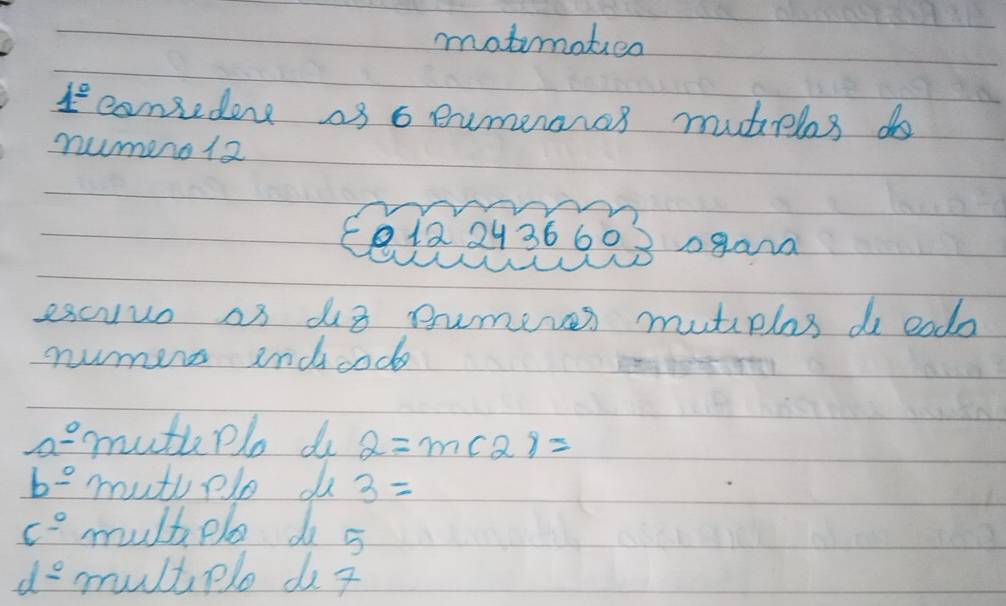 matematica
1º considere os 6 primeiros mutiplos do
numero 12
{0 12 24 36 60} agora
escrivo os dez primeiros mutiplos de cada
numero indicado
aº mutiplo de 2 = m(2) =
bº mutiplo de 3 =
cº multiplo de 5
dº multiplo de 7